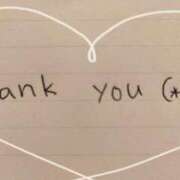 ank you (*